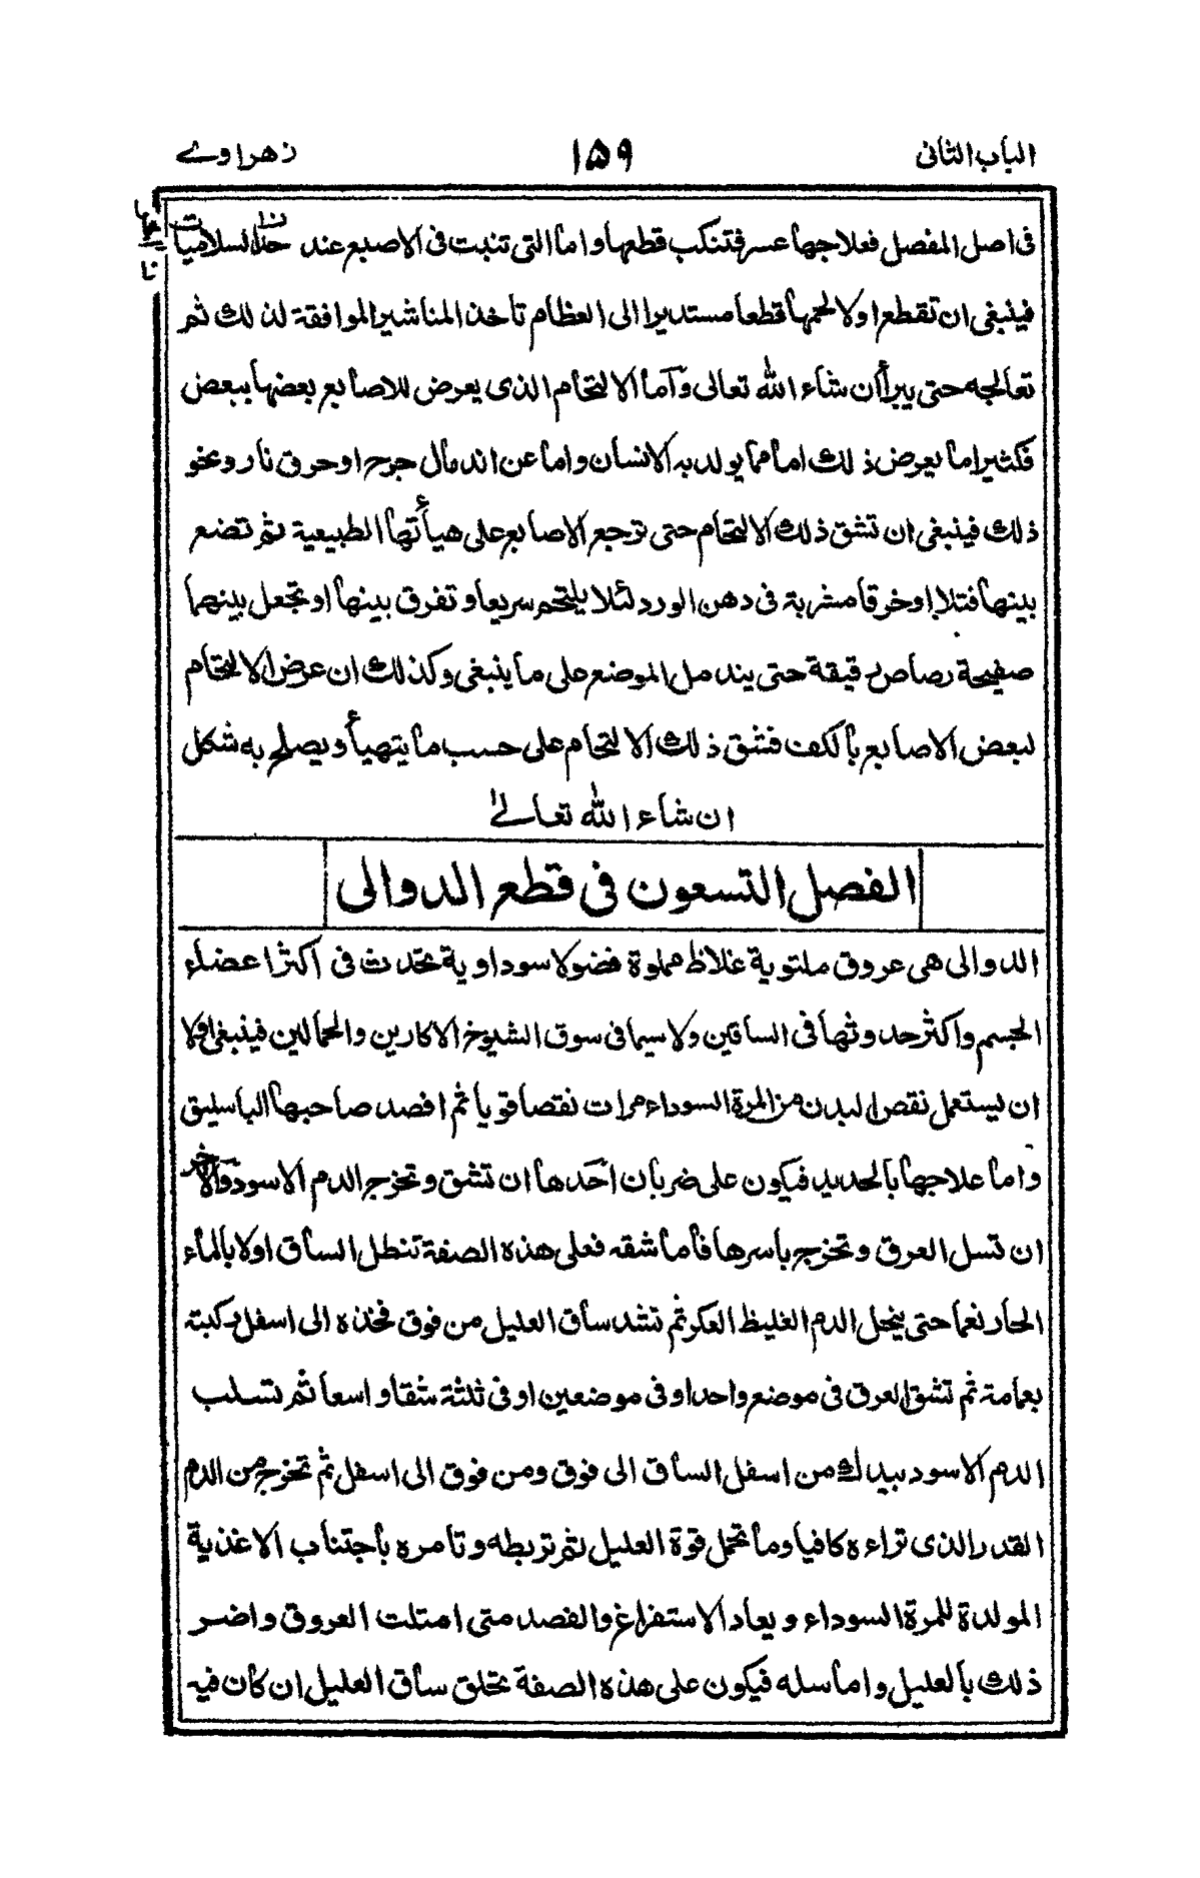 الباب الثانی ۱۵۹ زهراوے
فی اصل المفصل فعلاجها عسر فتنکب قطعها واما التی تنبت فی الاصبع عند السلامیات
فینبغی ان تقطع اولا لحمها قطعا مستدیرا الی العظام تاخذ المناشیر الموافقة لذلك ثم
تعالجه حتی یبرأ ان شاء الله تعالی وآما الالتحام الذی یعرض للاصابع بعضها ببعض
فکثیرا ما یعرض ذلك اما مما یولد به الانسان واما عن اندمال جرح او حرق نار ونحو
ذلك فینبغی ان تشق ذلك الالتحام حتی ترجع الاصابع علی هیأتها الطبیعیة ثم تضع
بینها فتلا او خرقا مشربة فی دهن الورد لئلا یلتحم سریعا وتفرق بینها او تجعل بینهما
صفیحة رصاص رقیقة حتی یندمل الموضع علی ما ینبغی وکذلك ان عرض الالتحام
لبعض الاصابع بالکف فشق ذلك الالتحام علی حسب ما یتهیأ ویصلح به شکل
ان شاء الله تعالےٰ
الفصل التسعون فی قطع الدوالی
الدوالی هی عروق ملتویة غلاظ مملوة فضولا سوداویة تحدث فی اکثر اعضاء
الجسم واکثر حدوثها فی الساقین ولا سیما فی سوق الشیوخ الاکارین والحمالین فینبغی اولا
ان یستعمل نقص البدن من المرة السوداء مرات نقصا قویا ثم افصد صاحبها الباسلیق
واما علاجها بالحدید فیکون علی ضربان احدها ان تشق وتخرج الدم الاسود والاخر
ان تسل العرق وتخرجه باسرها فاما شقه فعلی هذه الصفة تنطل الساق اولا بالماء
الحار نعما حتی ینحل الدم الغلیظ العکر ثم تشد ساق العلیل من فوق فخذه الی اسفل رکبته
بعمامة ثم تشق العرق فی موضع واحد او فی موضعین او فی ثلثة شقا واسعا ثم تسلب
الدم الاسود بیدك من اسفل الساق الی فوق ومن فوق الی اسفل ثم تخرج من الدم
القدر الذی تراءه کافیا وما تحمل قوة العلیل ثم تربطه وتامره باجتناب الاغذیة
المولدة للمرة السوداء ویعاد الاستفراغ والفصد متی امتلت العروق واضر
ذلك بالعلیل واما سله فیکون علی هذه الصفة تحلق ساق العلیل ان کان فیه